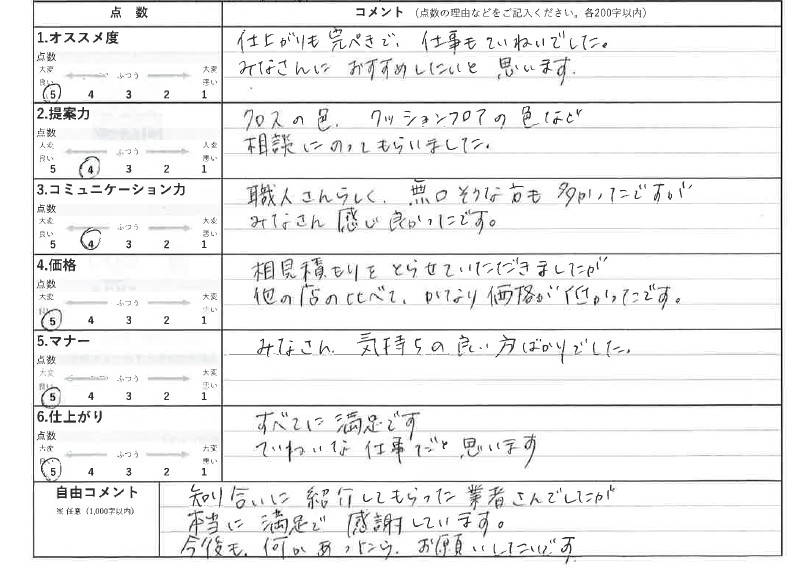 点 数
コメント（点数の理由などをご記入ください。各200字以内）
1.オススメ度
点数
大変良い ふつう 大変悪い
5 4 3 2 1
仕上がりも完ぺきで、仕事もていねいでした。
みなさんにおすすめしたいと思います。
2.提案力
点数
大変良い ふつう 大変悪い
5 4 3 2 1
クロスの色、クッションフロアの色など
相談にのってもらいました。
3.コミュニケーション力
点数
大変良い ふつう 大変悪い
5 4 3 2 1
職人さんらしく、無口そうな方も多かったですが
みなさん感じ良かったです。
4.価格
点数
大変良い ふつう 大変悪い
5 4 3 2 1
相見積もりをとらせていただきましたが
他の店の比べて、かなり価格が低かったです。
5.マナー
点数
大変良い ふつう 大変悪い
5 4 3 2 1
みなさん、気持ちの良い方ばかりでした。
6.仕上がり
点数
大変良い ふつう 大変悪い
5 4 3 2 1
すべてに満足です
ていねいな仕事だと思います
自由コメント
※任意（1,000字以内）
知り合いに紹介してもらった業者さんでしたが
本当に満足で感謝しています。
今後も、何かあったら、お願いしたいです